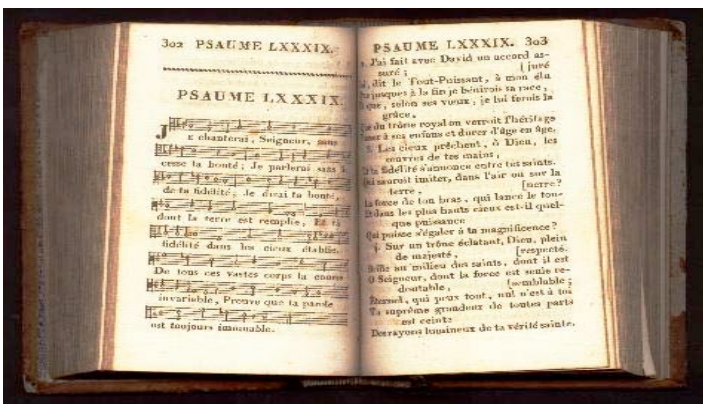 302 PSAUME LXXXIX.
PSAUME LXXXIX.
Je chanterai, Seigneur, sans
cesse ta bonté; Je parlerai sans
de ta fidélité; Je dirai ta bonté,
dont la terre est remplie, Et ta
fidélité dans les cieux établie.
De tous ces vastes corps la course
invariable, Prouve que ta parole
est toujours immuable.
PSAUME LXXXIX. 303
J'ai fait avec David un accord as-
suré; [juré
dit le Tout-Puissant, à mon élu
jusques à la fin je bénirois sa race,
que, selon ses vœux, je lui ferois la
grâce,
du trône royal on verroit l'héritage
à ses enfans et durer d'âge en âge.
3. Les cieux prêchent, ô Dieu, les
œuvres de tes mains,
ta fidélité s'annonce entre tes saints.
Qui sauroit imiter, dans l'air ou sur la
terre, [nerre?
la force de ton bras, qui lance le ton-
Et dans les plus hauts cieux est-il quel-
que puissance
Qui puisse s'égaler à ta magnificence?
4. Sur un trône éclatant, Dieu, plein
de majesté, [respecté.
Brille au milieu des saints, dont il est
O Seigneur, dont la force est seule re-
doutable, [semblable;
Éternel, qui peux tout, nul n'est à toi
Ta suprême grandeur de toutes parts
est ceinte
Des rayons lumineux de ta vérité sainte.